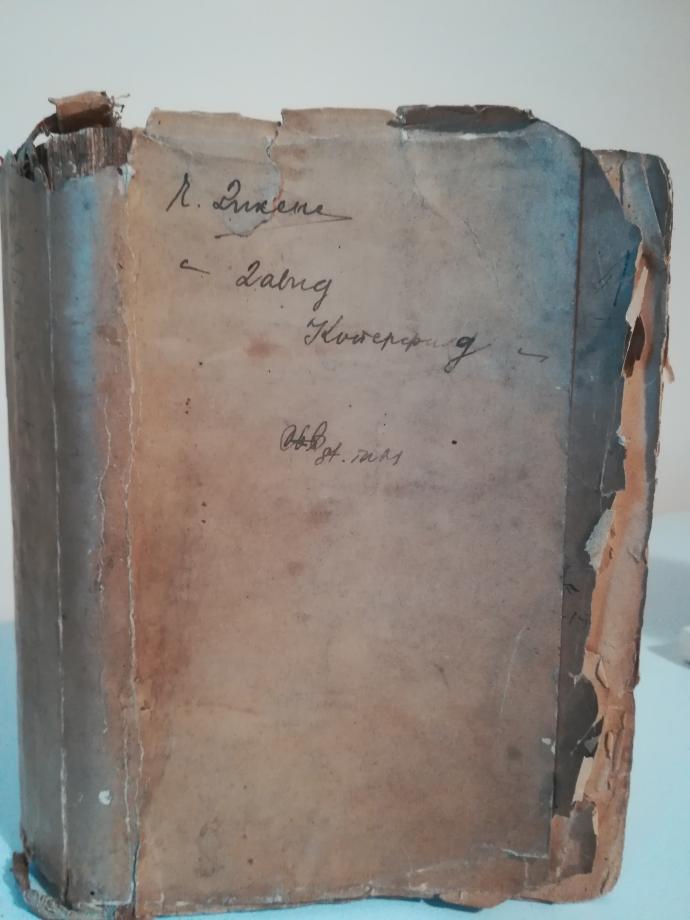 Ч. Дикенс
„ Давид
Коперфилд "